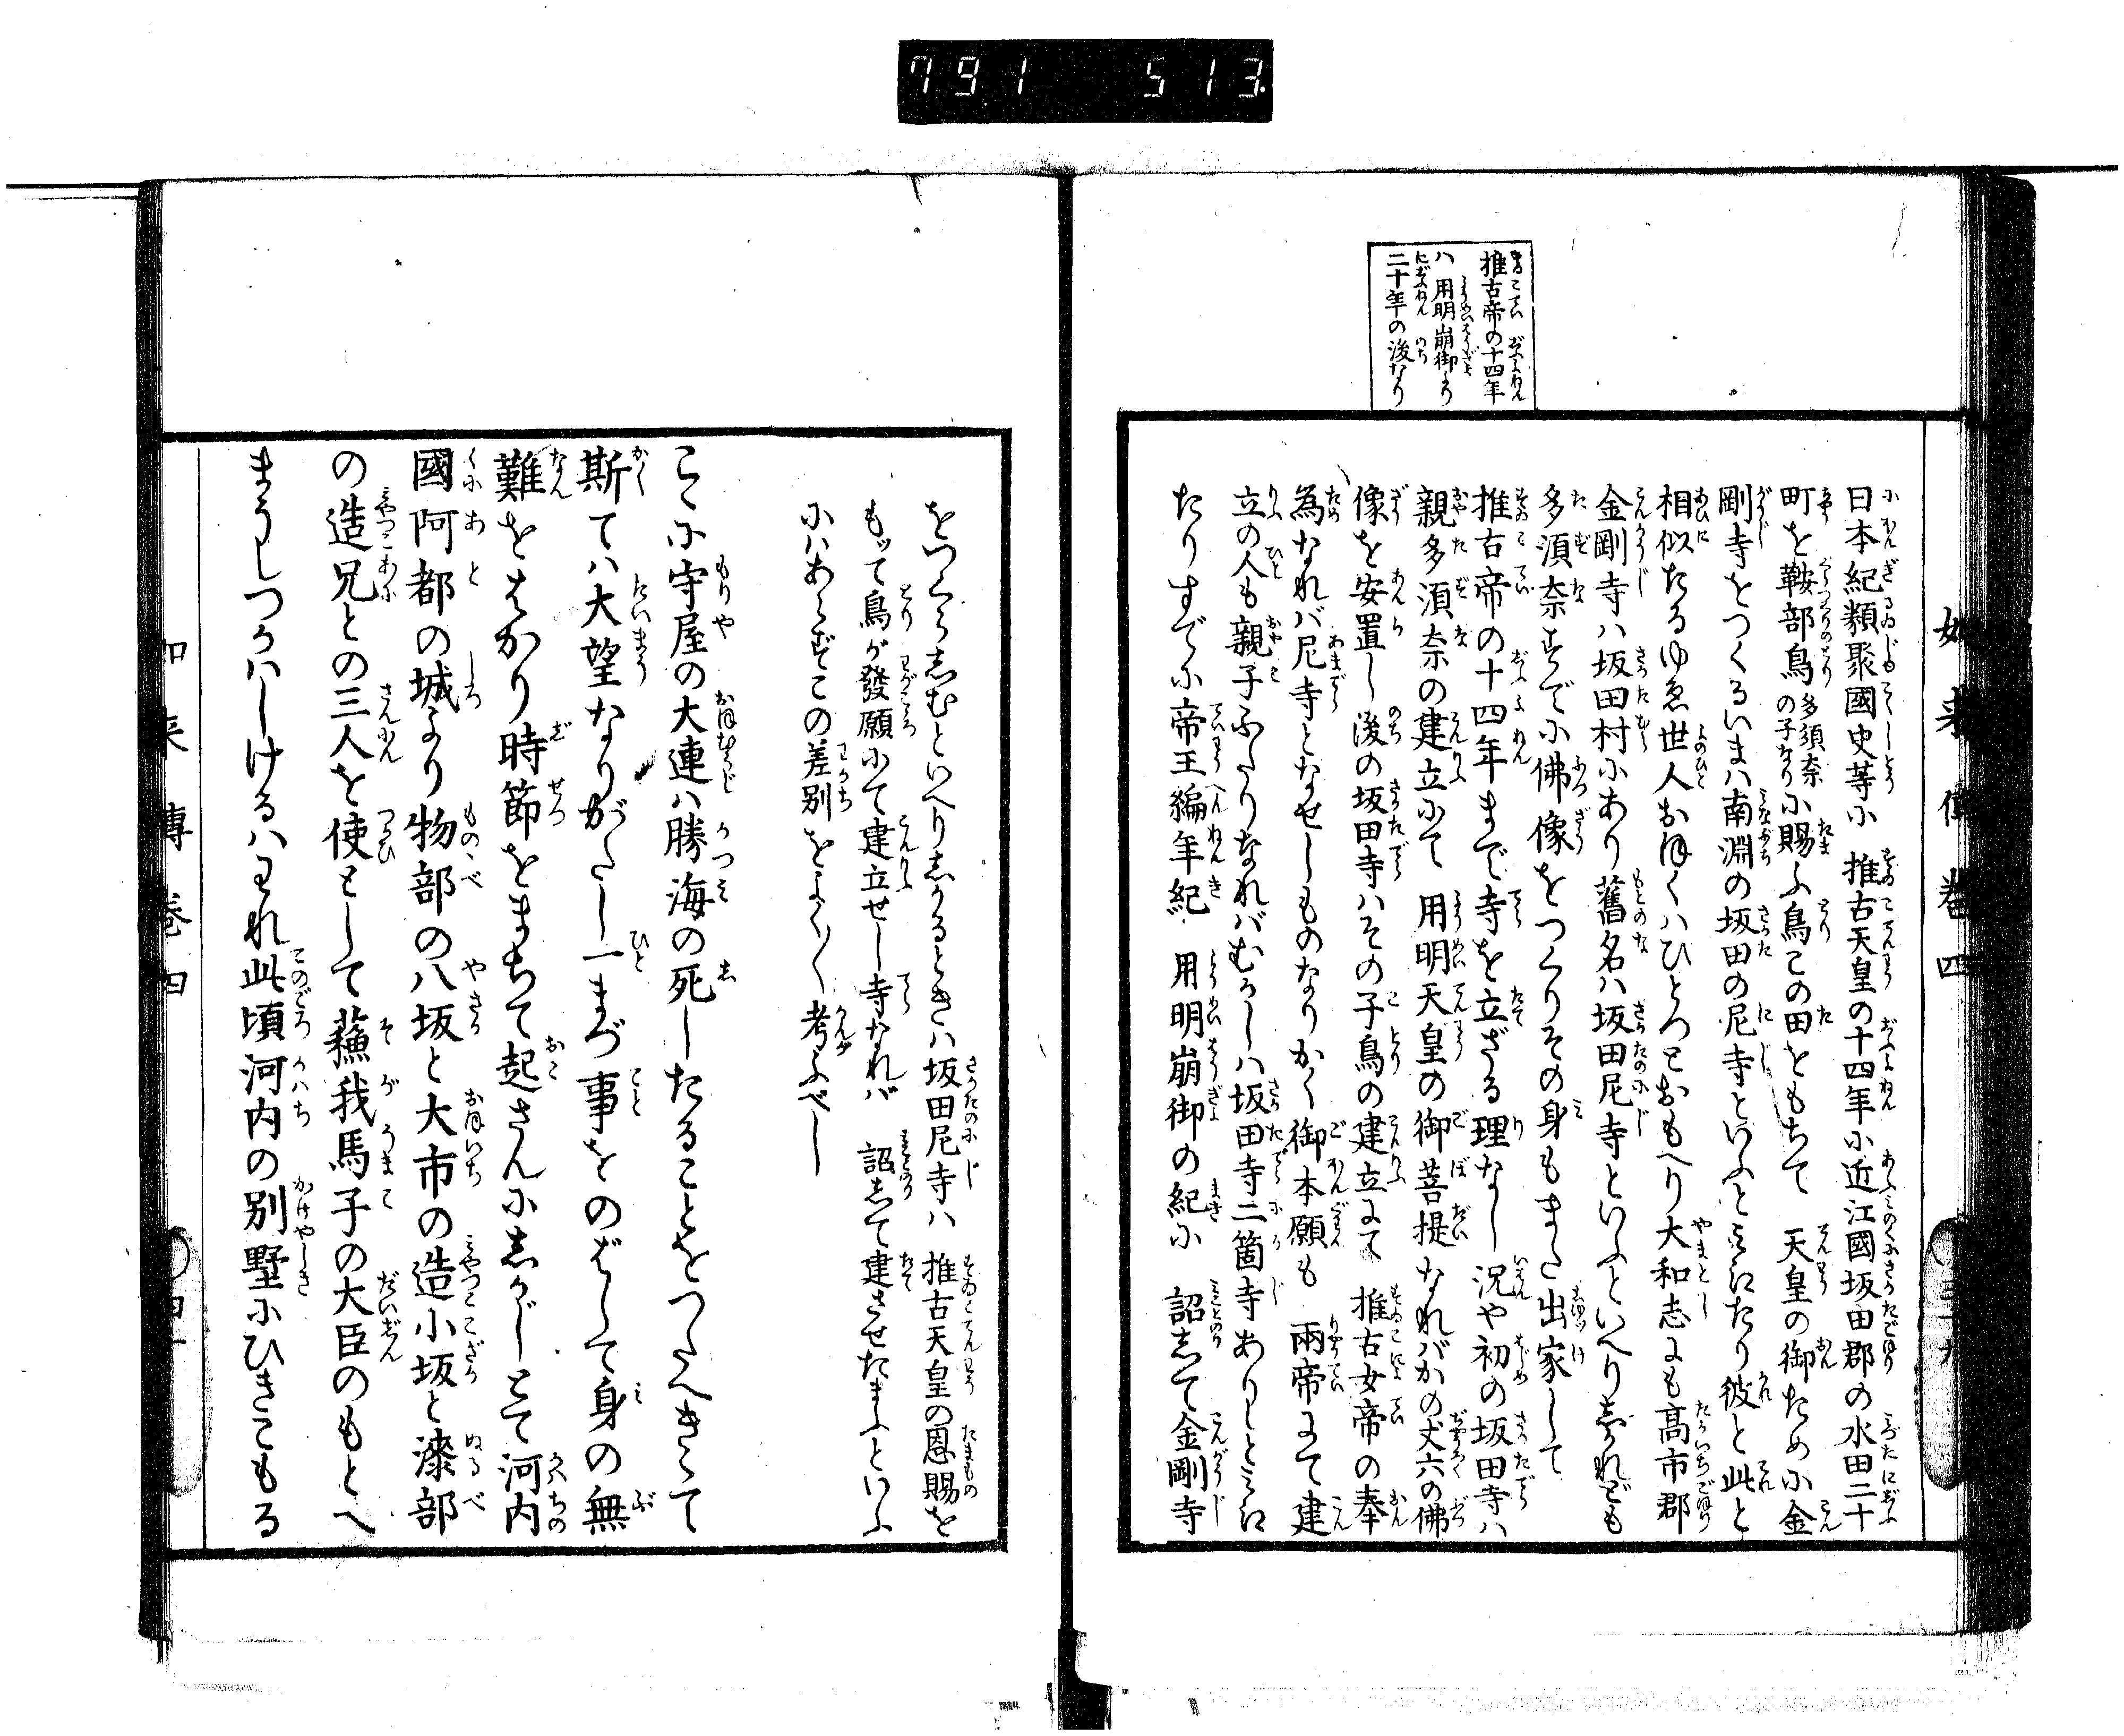 791 513
推古帝の十四年
ハ用明崩御より
二十年の後なり
如来傳巻四
日本紀類聚國史等に 推古天皇の十四年に近江國坂田郡の水田二十
町を鞍部鳥多須奈の子なりに賜ふ鳥この田をもちて 天皇の御ために金
剛寺をつくるいまハ南淵の坂田の尼寺といふと見江たり彼と此と
相似たるゆゑ世人おほくハひとつとおもへり大和志にも高市郡
金剛寺ハ坂田村にあり舊名ハ坂田尼寺といふといへりしかれども
多須奈すでに佛像をつくりその身もまた出家して
推古帝の十四年まで寺を立ざる理なし況や初の坂田寺ハ
親多須奈の建立にて 用明天皇の御菩提なれバかの丈六の佛
像を安置し後の坂田寺ハその子鳥の建立にて 推古女帝の奉
為なれバ尼寺となせしものなりかく御本願も 兩帝にて建
立の人も親子ふたりなれバむかしハ坂田寺二箇寺ありしと見江
たりすでに帝王編年紀 用明崩御の紀に 詔して金剛寺
をつくらしむといへりしかるときハ坂田尼寺ハ 推古天皇の恩賜を
もッて鳥が發願にて建立せし寺なれバ 詔して建させたまふといふ
にハあらずこの差別をよく〱考ふべし
こゝに守屋の大連ハ勝海の死したることをつたへきゝて
斯てハ大望なりがたし一まづ事をのばして身の無
難をはかり時節をまちて起さんにしかじとて河内
國阿都の城より物部の八坂と大市の造小坂と漆部
の造兄との三人を使として蘓我馬子の大臣のもとへ
まうしつかハしけるハわれ此頃河内の別墅にひきこもる
如来傳巻四